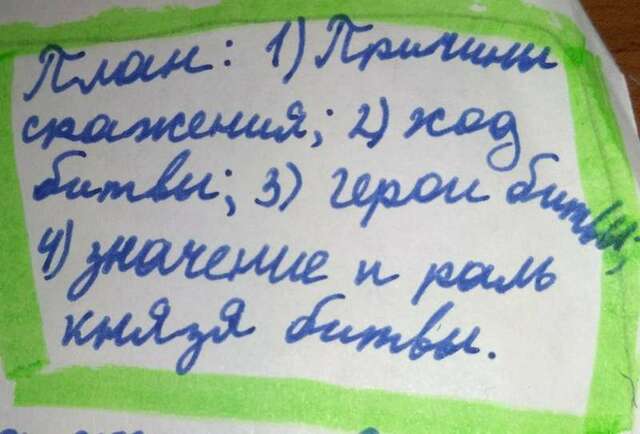 План: 1) Причины
сражения; 2) ход
битвы; 3) герои битвы;
4) значение и роль
князя битвы.